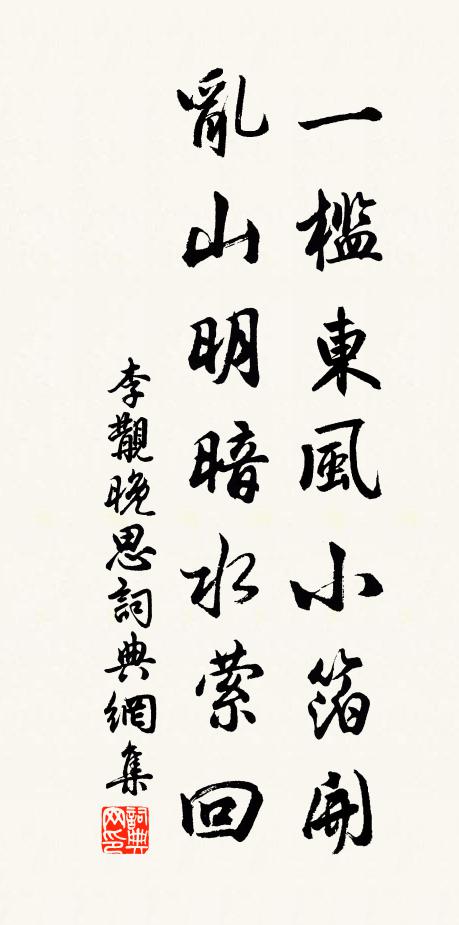 一檻東風小箔開
亂山明暗水縈回
李覯晚思詞典網集
詞典网印